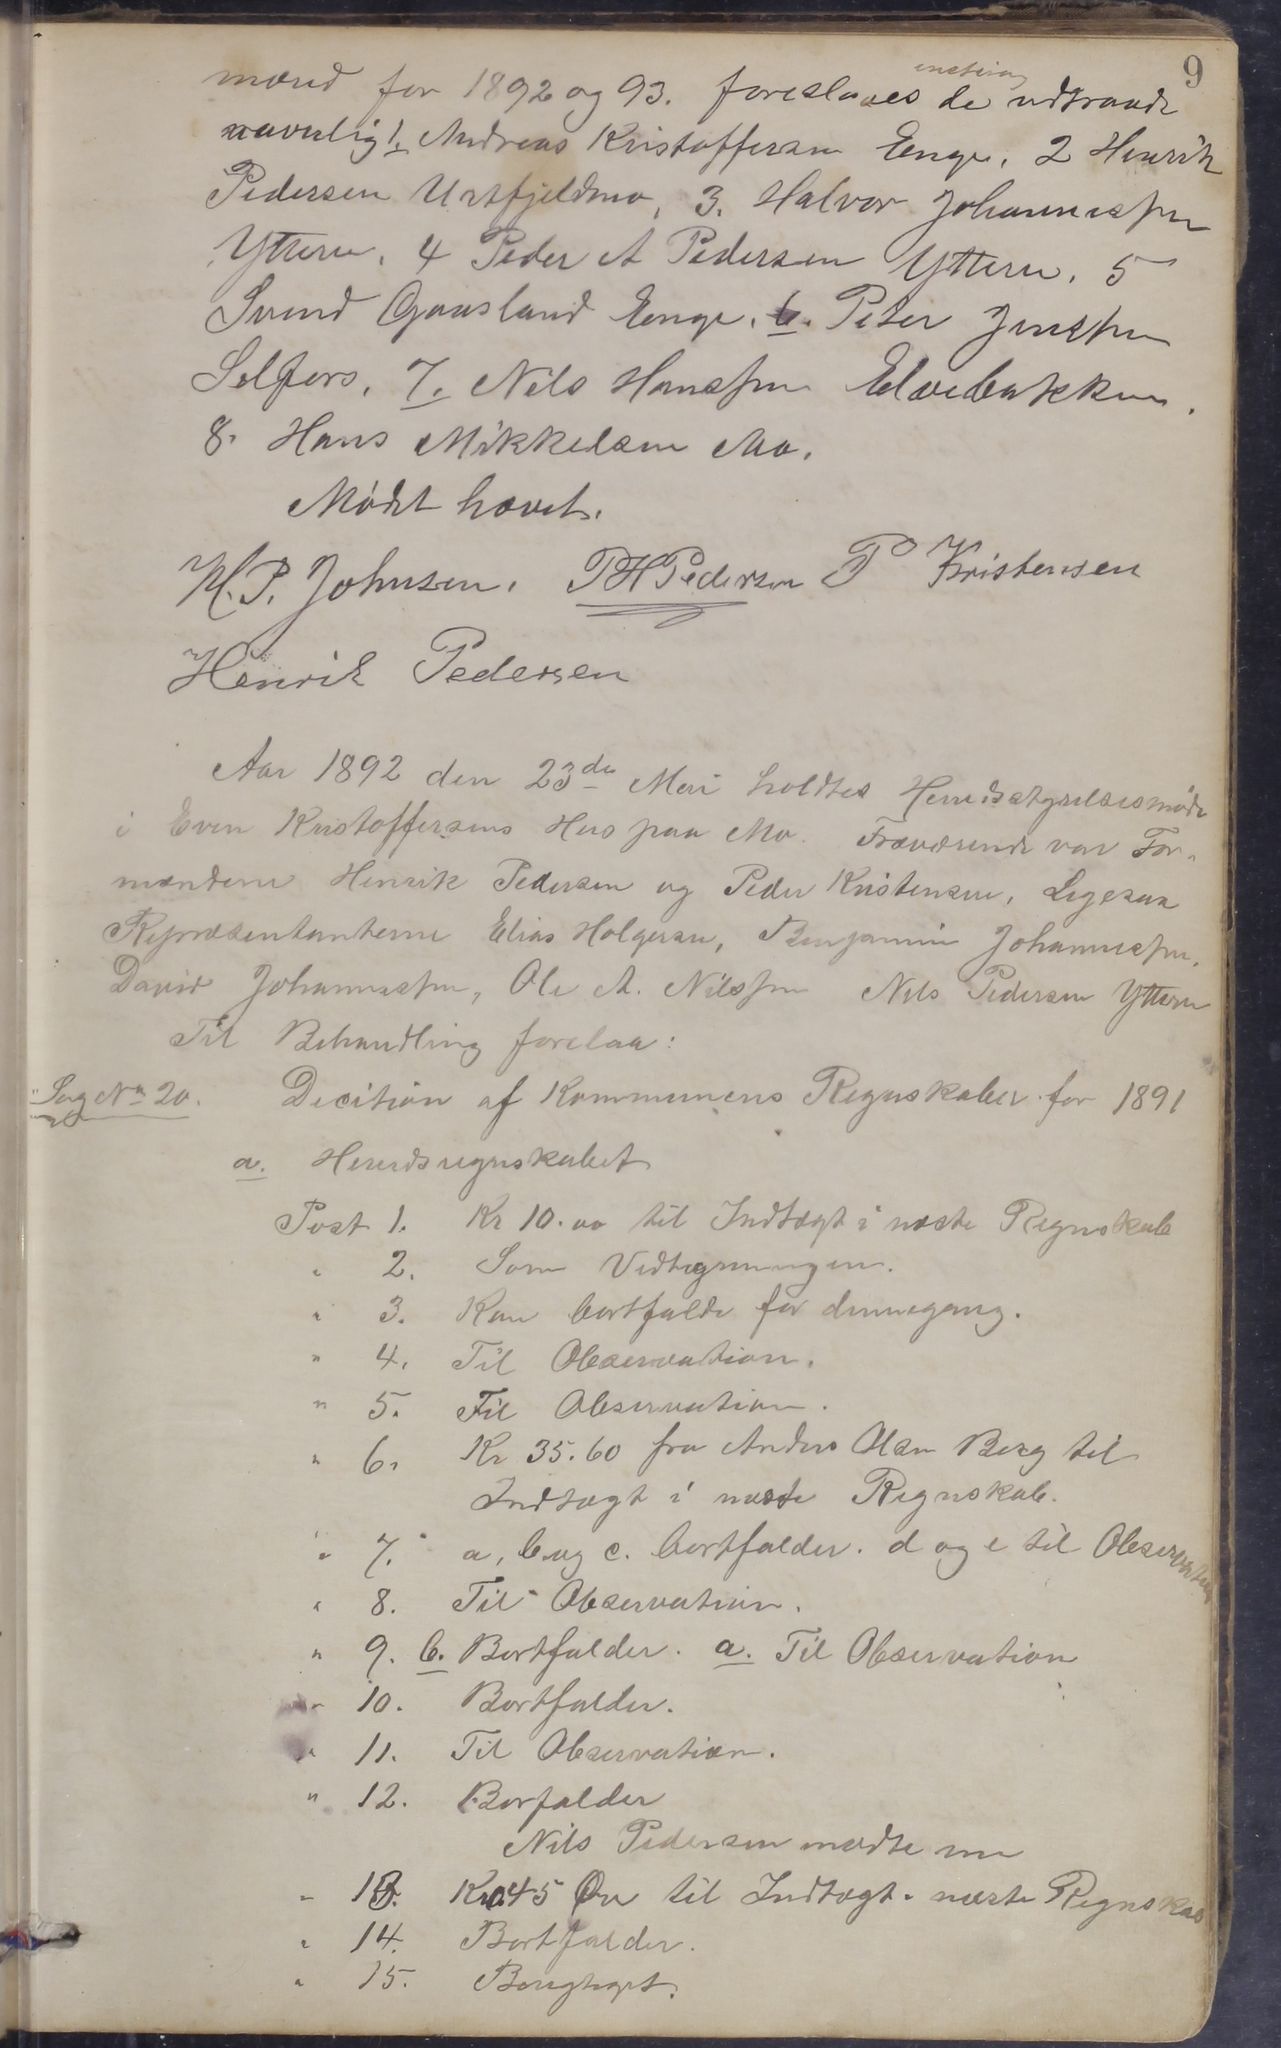 9
mænd for 1892 og 93. foreslaaes de udtraadte
navnlig 1. Andreas Kristoffersen Enge, 2 Henrik
Pedersen Urtfjeldmo, 3. Halvor Johannesen
Ytteren, 4 Peder A Pedersen Ytteren, 5
Svend Gaasland Enge, 6. Peter Jensen
Selfors, 7. Nils Hansen Elvebakken,
8. Hans Mikkelsen Mo.
Mødet hævet.
H. P. Johnsen. PHPedersen P Kristensen
Henrik Pedersen
Aar 1892 den 23de Mai holdtes Herredsstyrelsesmøde
i Even Kristoffersens Hus paa Mo. Fraværende var For-
mændene Henrik Pedersen og Peder Kristensen, Ligesaa
Repræsentanterne Elias Holgersen, Benjamin Johannesen,
David Johannesen, Ole A. Nilsen Nils Pedersen Ytteren
Til Behandling forelaa:
Sag No 20. Decition af Kommunens Regnskaber for 1891
a. Herredsregnskabet
Post 1. Kr 10.00 til Indtægt i næste Regnskab
" 2. Som Vedtegningen.
" 3. Kan bortfalde for dennegang.
" 4. Til Observation.
" 5. Til Observation.
" 6. Kr 35.60 fra Anders Olsen Berg til
Indtægt i næste Regnskab.
" 7. a, b og c. bortfalder. d og e til Observation
" 8. Til Observation.
" 9. b. Bortfalder. a. Til Observation
" 10. Bortfalder.
" 11. Til Observation.
" 12. Borfalder
Nils Pedersen mødte nu
" 13. Kr 0.45 Øre til Indtægt i næste Regnskab
" 14. Bortfalder.
" 15. Berigtiget.